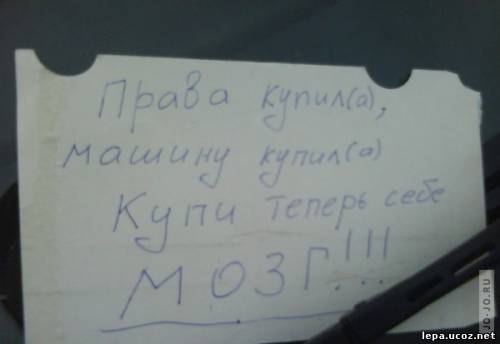 Права купил(а),
машину купил(а)
Купи теперь себе
МОЗГ!!!
JO-JO.RU
lepa.ucoz.net